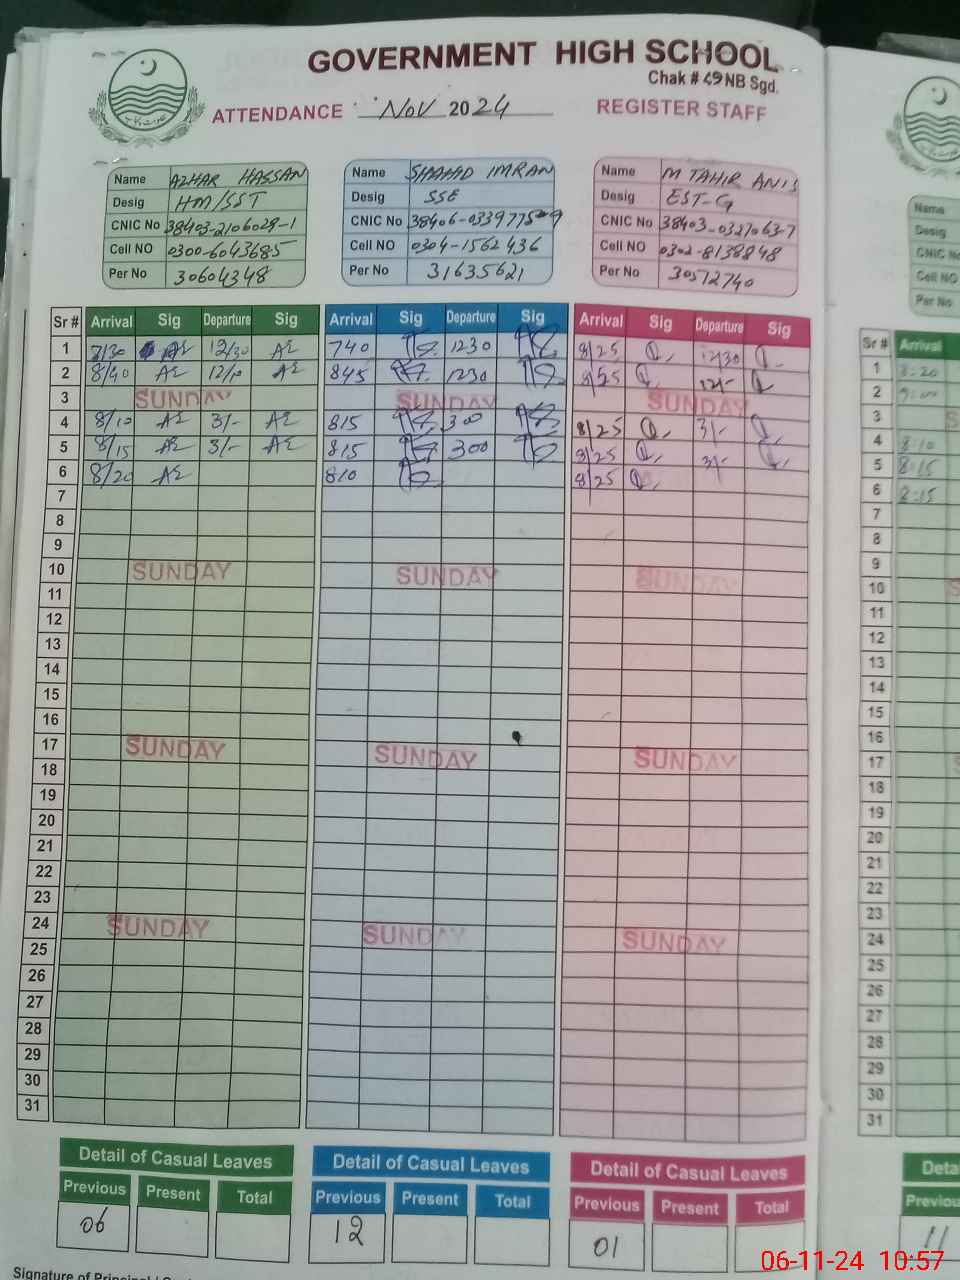 GOVERNMENT HIGH SCHOOL
Chak # 49 NB Sgd.
ATTENDANCE Nov 2024 REGISTER STAFF
Name AZHAR HASSAN
Desig HM/SST
CNIC No 38403-2106029-1
Cell NO 0300-6043685
Per No 30604348
Name SHAHID IMRAN
Desig SSE
CNIC No 38406-0339775-9
Cell NO 0304-1562436
Per No 31635621
Name M TAHIR ANIS
Desig EST-G
CNIC No 38403-0327063-7
Cell NO 0302-8138848
Per No 30572740
Sr # Arrival Sig Departure Sig Arrival Sig Departure Sig Arrival Sig Departure Sig
1 8/30 12/30 740 1230 8/25 12/30
2 8/40 845 1230 8/25 12/-
3 SUNDAY SUNDAY SUNDAY
4 8/10 3/- 815 300 8/25 3/-
5 8/15 3/- 815 300 8/25 3/-
6 8/20 810 8/25
7
8
9
10 SUNDAY SUNDAY SUNDAY
11
12
13
14
15
16
17 SUNDAY SUNDAY SUNDAY
18
19
20
21
22
23
24 SUNDAY SUNDAY SUNDAY
25
26
27
28
29
30
31
Detail of Casual Leaves Detail of Casual Leaves Detail of Casual Leaves
Previous Present Total Previous Present Total Previous Present Total
06 12 01
Signature of Principal
Name
Desig
CNIC No
Cell NO
Per No
Sr # Arrival
1 8:20
2 9:00
3 S
4 8:10
5 8:15
6 8:15
7
8
9
10 S
11
12
13
14
15
16
17 S
18
19
20
21
22
23
24
25
26
27
28
29
30
31
Deta
Previou
11
06-11-24 10:57